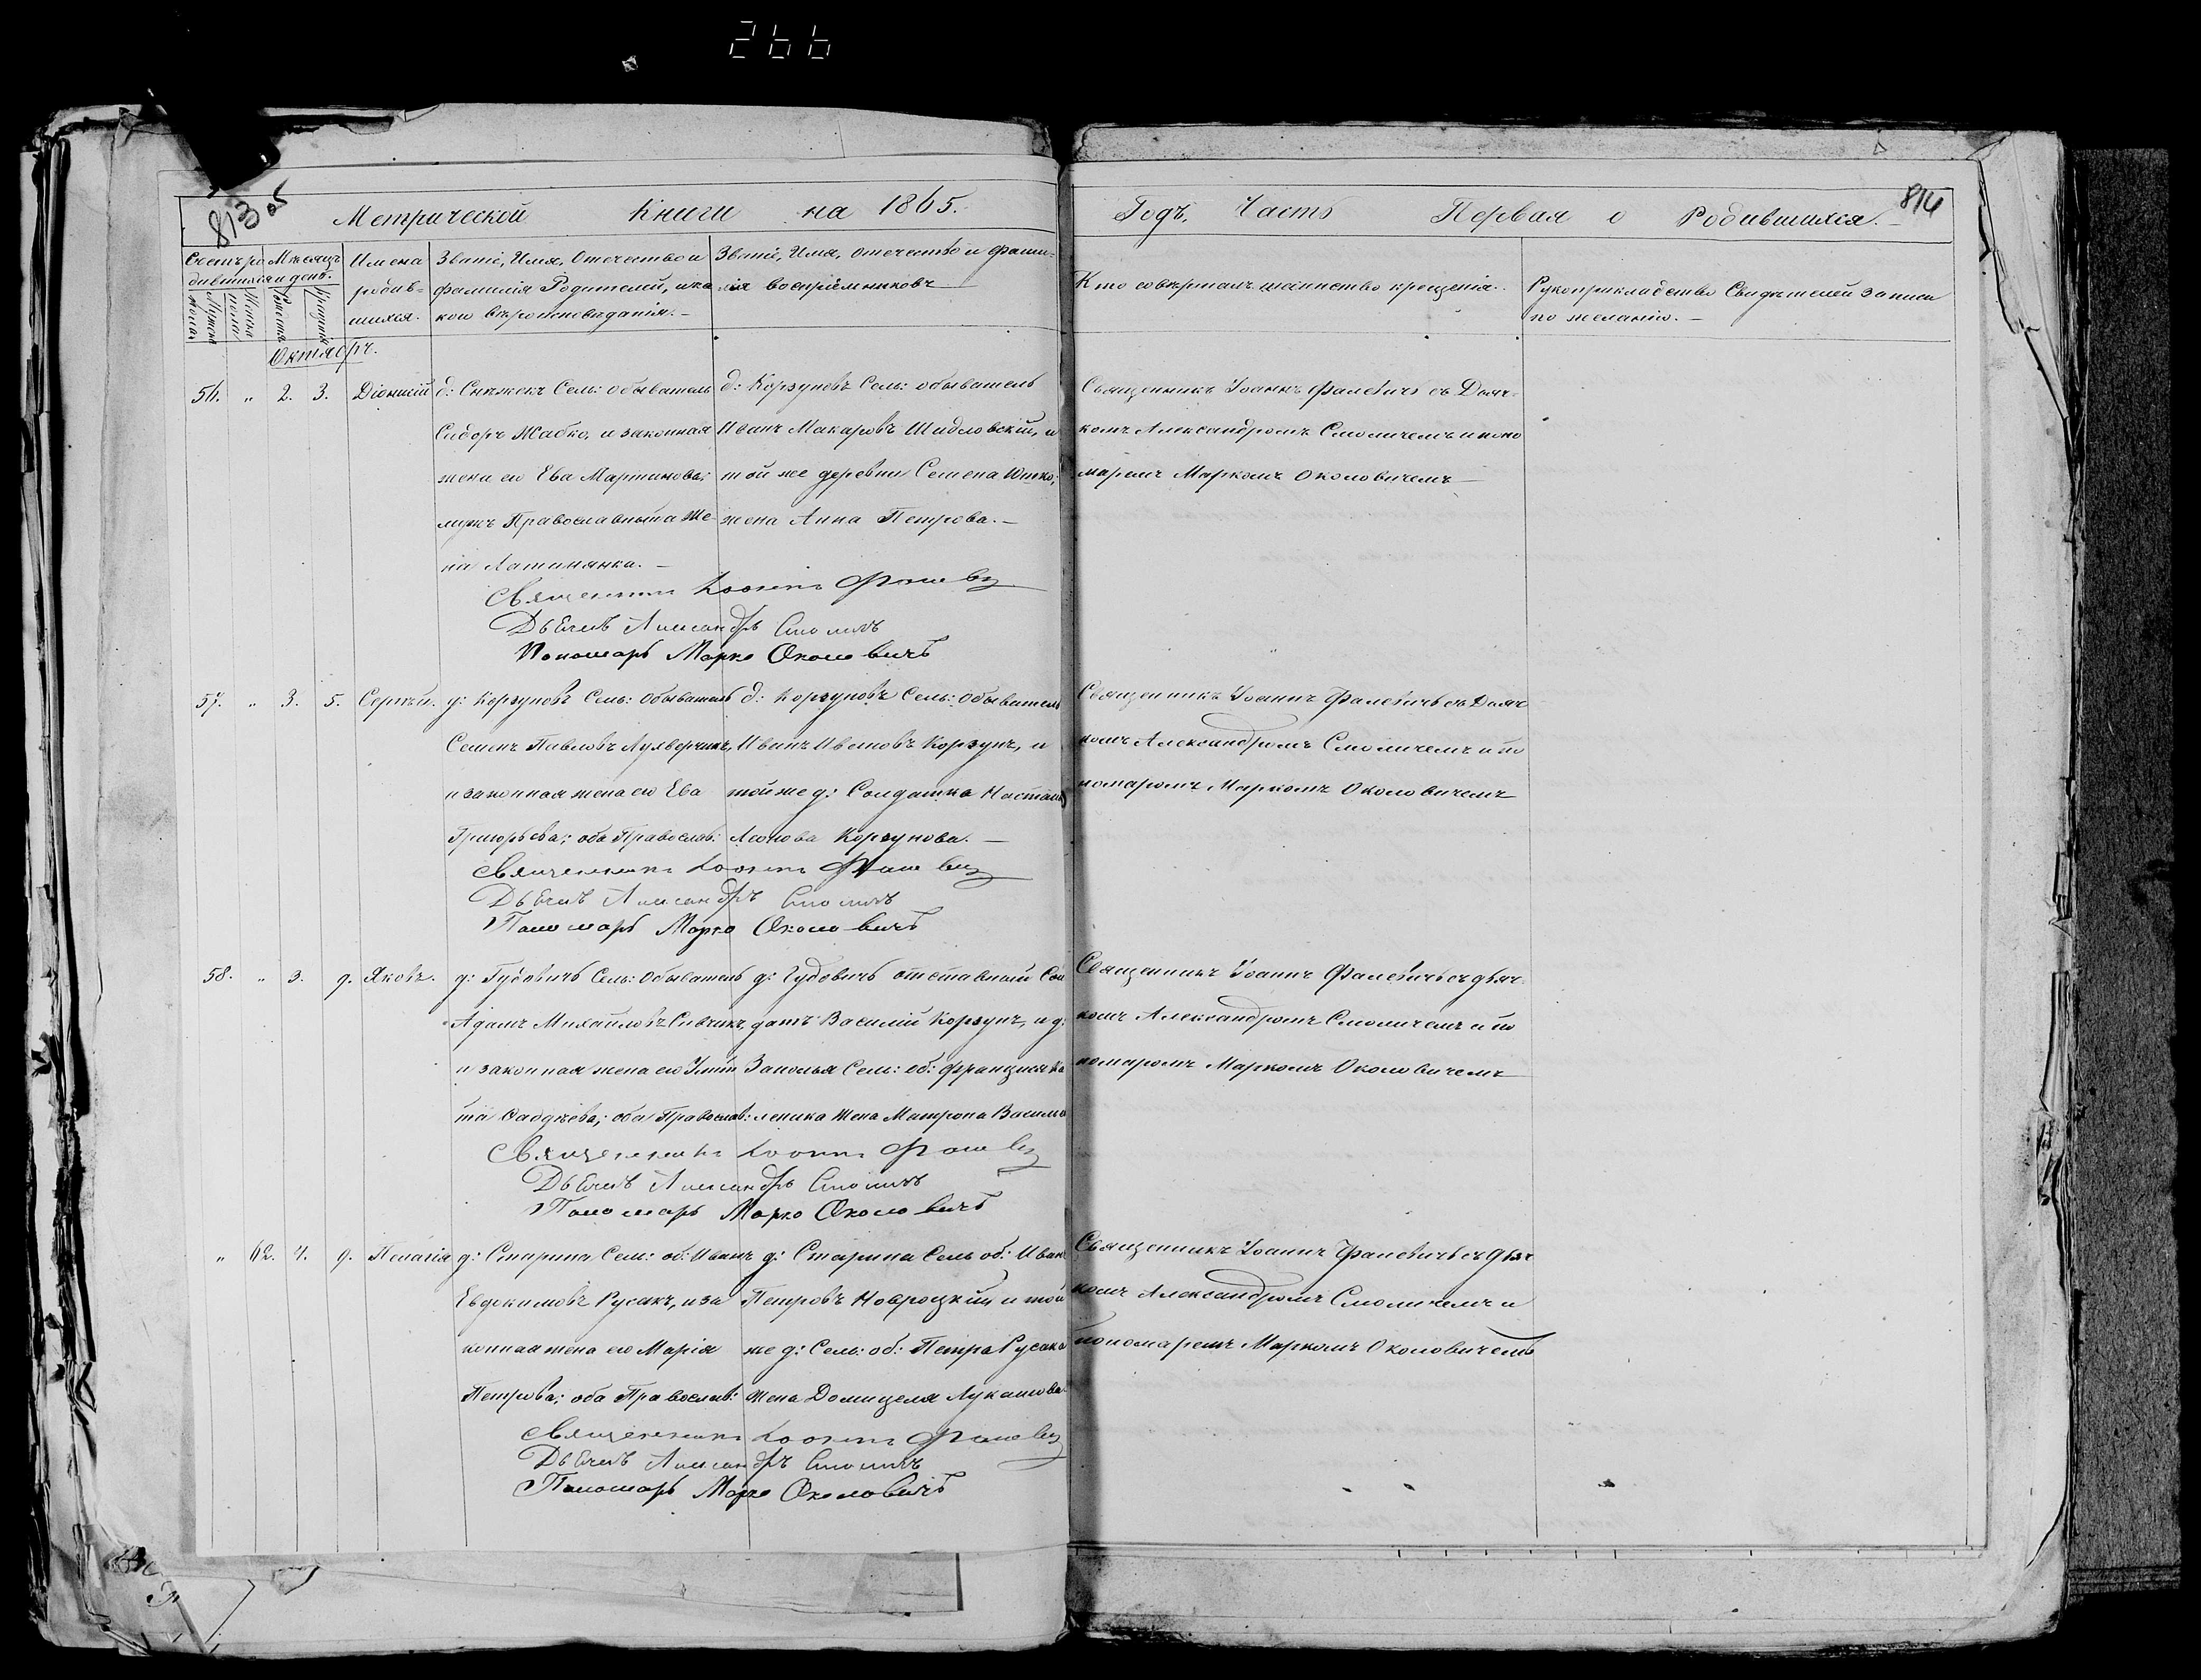 266
813 об
814
Метрической Книги на 1865.
Годъ, Часть Первая о Родившихся.
Счетъ ро
дившихся
Мѣсяцъ
и день.
Мужеска
пола
Женска
пола
Имена
родив=
шихся.
Званіе, Имя, Отечество и
фамилія Родителей, и ка
кои вѣроисповѣданія.
Званіе, Имя, отечество и фами=
лія воспріемниковъ
Кто совершалъ таинство крещенія.
Рукоприкладство Свидѣтелей Записи
по желанію.
Октябрь.
56. " 2. 3. Діонисій
д: Снѣжекъ Сель: Обыватель
Сидоръ Жабко, и законная
жена его Ева Мартинова;
мужъ Православный а Же=
на Латинянка.
д: Корзуновъ Сель: обыватель
Иванъ Макаровъ Шидловскій, и
той же деревни Семена Юшко;
жена Анна Петрова.
Священникъ Іоаннъ Фалевичъ съ Дьяч=
комъ Александромъ Смоличемъ и поно
маремъ Маркомъ Околовичемъ
Священникъ Іоаннъ Фалевич
Дьячекъ Александръ Смоличъ
Пономарь Марко Околовичъ
57. " 3. 5. Сергѣй.
д: Корзуновъ Сель: Обыватель
Семенъ Павловъ
и законная жена его Ева
Григорьева; оба Православ:
д: Корзуновъ Сель: Обыватель
Иванъ Ивановъ Корзунъ, и
той же д: Солдатка Настасія
Леонова Корзунова.
Священникъ Іоаннъ Фалевичъ съ Дьяч
комъ Александромъ Смоличемъ и по
номаромъ Маркомъ Околовичемъ
Священникъ Іоаннъ Фалевич
Дьячекъ Александръ Смоличъ
Пономарь Марко Околовичъ
58. " 3. 9. Яковъ.
д: Гудовичъ Сель: Обыватель
Адамъ Михайловъ Сивчикъ,
и законная жена его
оба Православ:
д: Гудовичъ отставной Сол
датъ Василій Корзунъ, и д:
Заполья Сель: об: Франциска
жена Матрона
Священникъ Іоаннъ Фалевичъ съ дьяч
комъ Александромъ Смоличемъ и по
номаромъ Маркомъ Околовичемъ
Священникъ Іоаннъ Фалевич
Дьячекъ Александръ Смоличъ
Пономарь Марко Околовичъ
" 62. 7. 9. Пелагія
д: Старина Сель: об: Иванъ
Евдокимовъ Русакъ, и за
конная жена его Марія
Петрова; оба Православ:
д: Старина Сель об: Иван
Петровъ Новроцкій, и той
же д: Сель: об: Петра Русака
жена Домицеля Лукашова.
Священникъ Іоаннъ Фалевичъ съ Дьяч
комъ Александромъ Смоличемъ и
пономаремъ Маркомъ Околовичемъ
Священникъ Іоаннъ Фалевич
Дьячекъ Александръ Смоличъ
Пономарь Марко Околовичъ